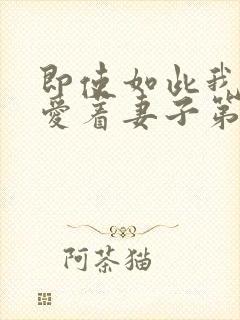 即使如此我
爱着妻子第
阿茶猫